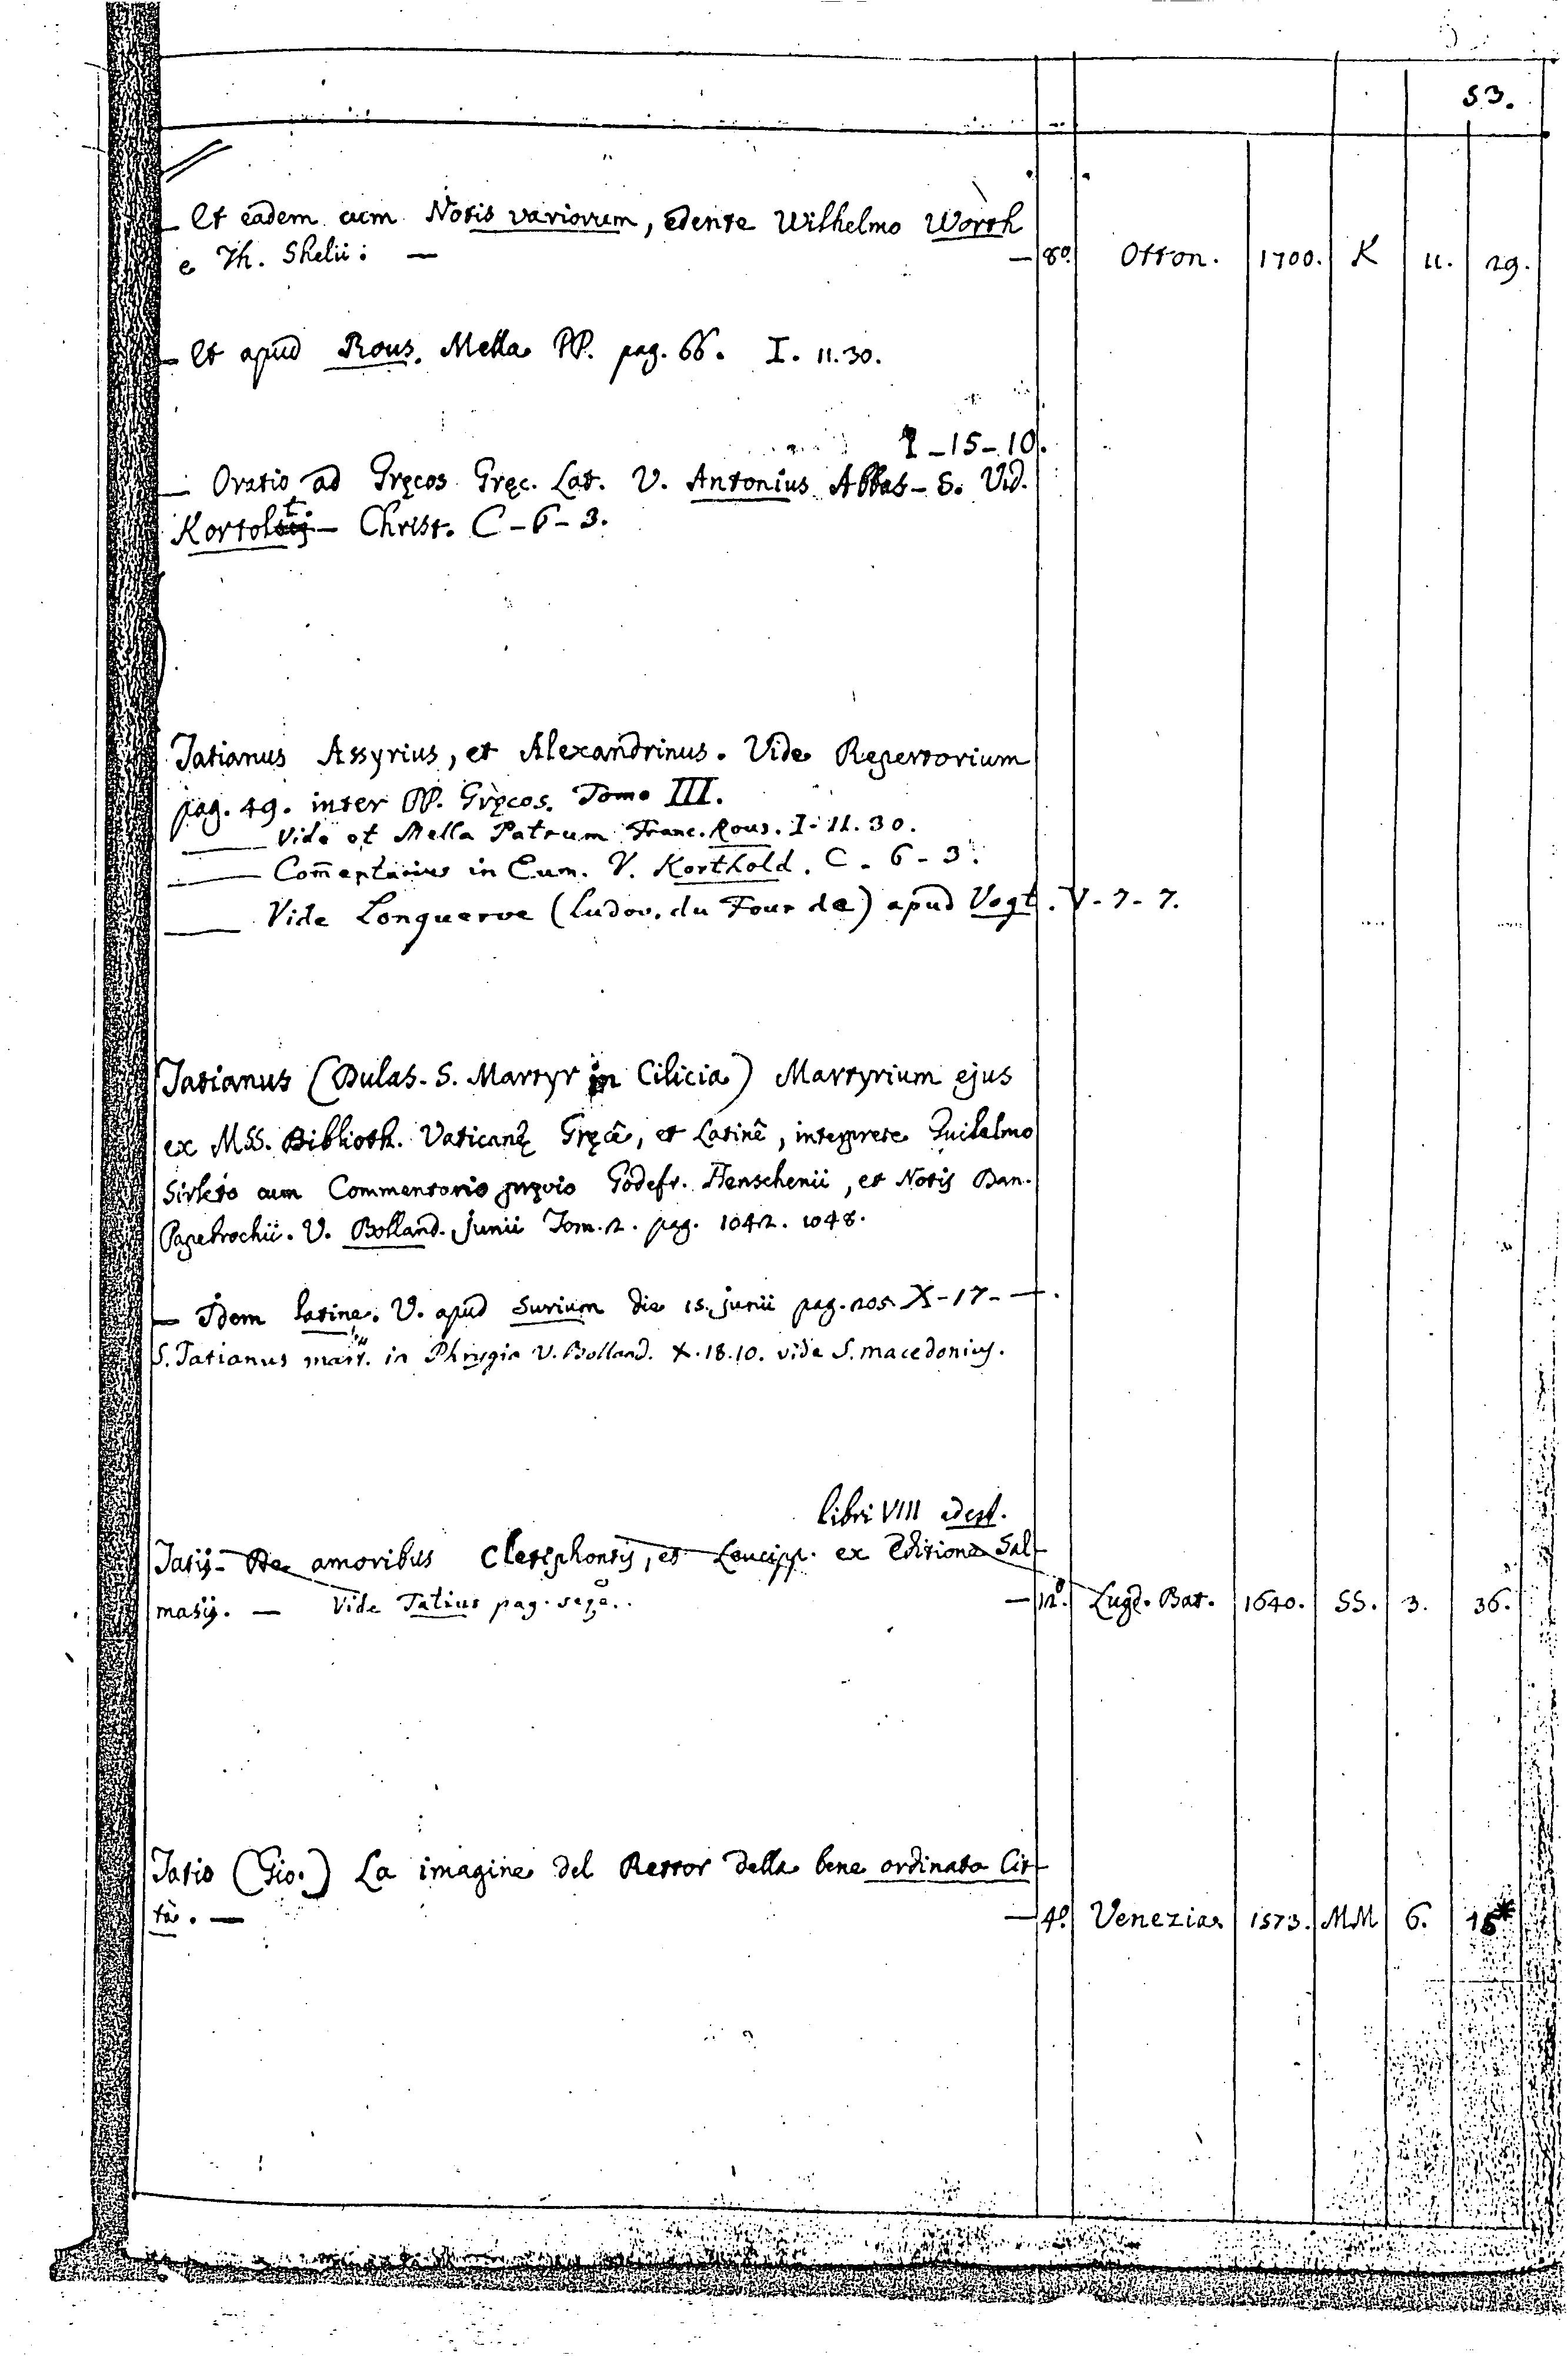 53.
— Et eadem cum Notis variorum, edente Wilhelmo Worth
e Th. Shelii: — — 8º. Oxon. 1700. K 11. 29.
— Et apud Rous. Mella PP. pag. 66. I. 11. 30.
I - 15 - 10.
— Oratio ad Gręcos Gręc. Lat. V. Antonius Abbas - S. Vid.
Kortolt. — Christ. C - 6 - 3.
Tatianus Assyrius, et Alexandrinus. Vide Repertorium
pag. 49. inter PP. Gręcos. Tomo III.
— Vide et Mella Patrum Franc. Rous. I. 11. 30.
— Com̄entarius in Eum. V. Korthold. C - 6 - 3.
— Vide Longuerve (Ludov. du Four de) apud Vogt. V - 7 - 7.
Tatianus (Dulas. S. Martyr in Cilicia) Martyrium ejus
ex MSS. Biblioth. Vaticanę Gręcê, et Latinê, interprete Guilelmo
Sirleto cum Commentario pręvio Godefr. Henschenii, et Notis Dan.
Papebrochii. V. Bolland. Junii Tom. 2. pag. 1042. 1048.
— Idem latine. V. apud Surium die 15. junii pag. 205. X - 17 - — .
S. Tatianus mart. in Phrygia V. Bolland. X. 18. 10. vide S. macedonius.
libri VIII
Tatij - De amoribus Cletiphontis, et Leucipp. ex Editione Sal-
masij. — Vide Tatius pag. seqē. — 12º. Lugd. Bat. 1640. SS. 3. 36.
Tatio (Gio.) La imagine del Rettor della bene ordinata Cit-
tà. — — 4º. Venezia 1573. MM 6. 15*